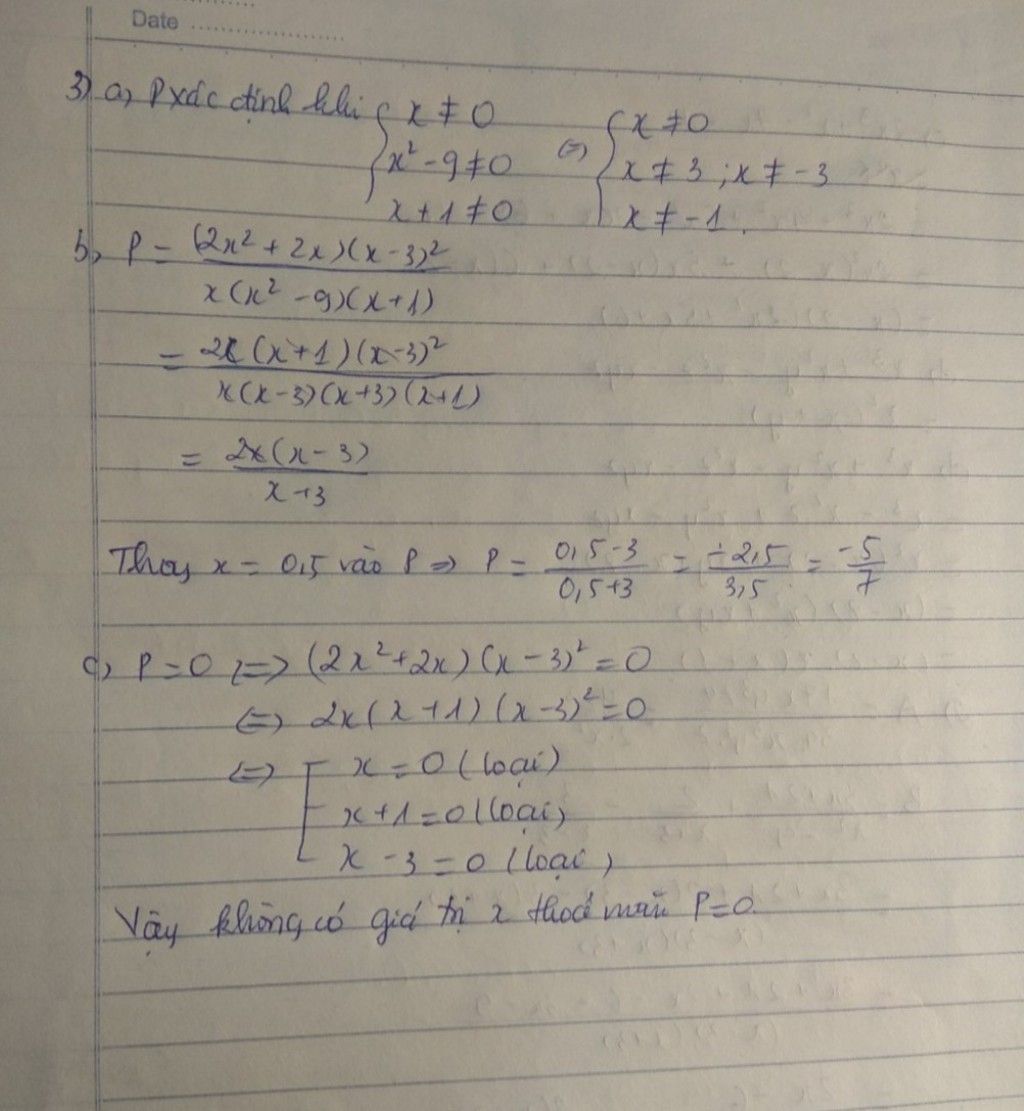 Date ........................
3) a, P xác định khi { x ≠ 0 ; x² - 9 ≠ 0 ; x + 1 ≠ 0 (=) { x ≠ 0 ; x ≠ 3 ; x ≠ -3 ; x ≠ -1.
b, P = (2x² + 2x)(x - 3)² / x(x² - 9)(x + 1)
= 2x(x + 1)(x - 3)² / x(x - 3)(x + 3)(x + 1)
= 2x(x - 3) / x + 3
Thay x = 0,5 vào P => P = 0,5 - 3 / 0,5 + 3 = -2,5 / 3,5 = -5 / 7
c, P = 0 <=> (2x² + 2x)(x - 3)² = 0
<=> 2x(x + 1)(x - 3)² = 0
<=> [ x = 0 (loại)
x + 1 = 0 (loại)
x - 3 = 0 (loại)
Vậy không có giá trị x thoả mãn P = 0.